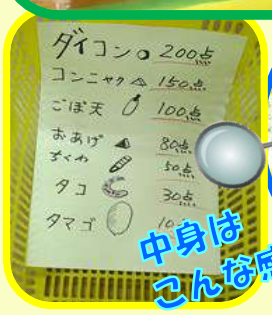 ダイコン 200点
コンニャク 150点
ごぼ天 100点
おあげ 80点
ちくわ 50点
タコ 30点
タマゴ
中身は
こんな